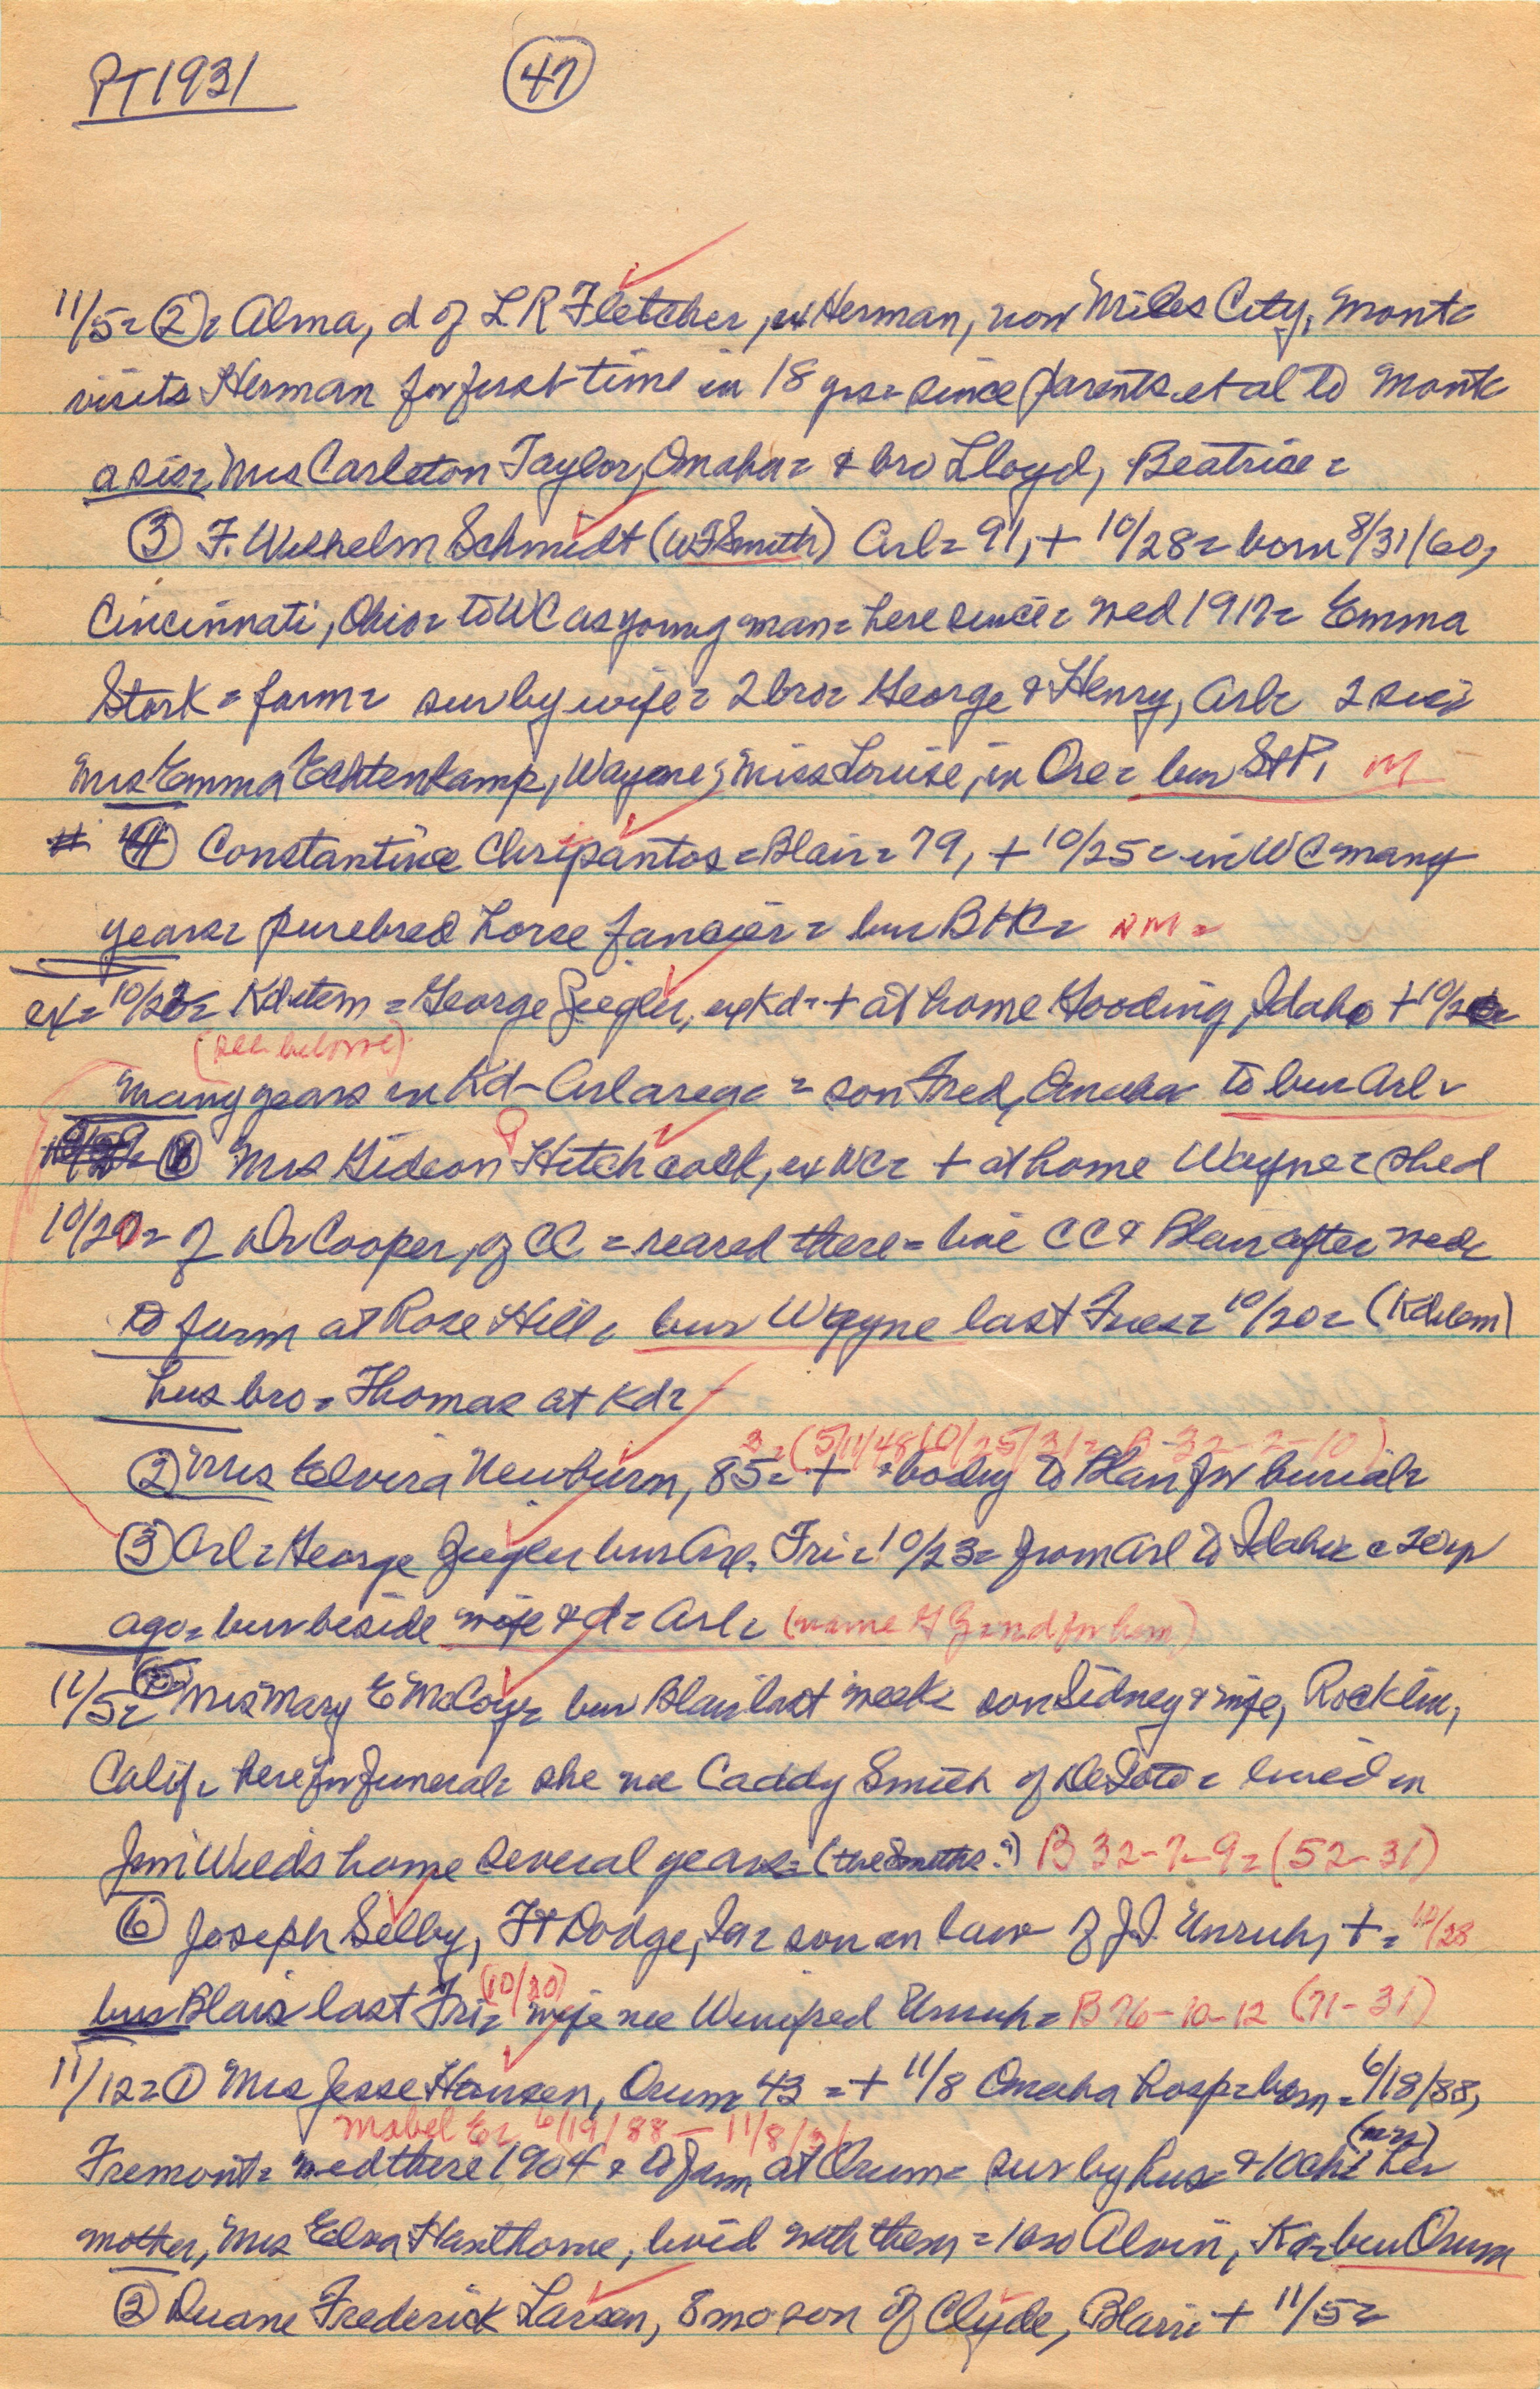 PT 1931
47
11/5= ② = Alma, d of L R Fletcher, ex Herman, now Miles City, Mont=
visits Herman for first time in 18 yrs= since parents et al to Mont=
a sis= Mrs Carleton Taylor, Omaha= & bro Lloyd, Beatrice=
③ F. Wilhelm Schmidt (WF Smith) Arl= 91, + 10/28= born 8/31/60,
Cincinnati, Ohio= to WC as young man= here since= wed 1917= Emma
Stork = farm= sur by wife= 2 bro= George & Henry, Arl= 2 sis=
Mrs Emma Echtenkamp, Wayne; Miss Louise, in Ore= bur St P, M
④ Constantine Chripantos = Blair= 79, + 10/25= in WC many
years= purebred horse fancier= bur BHC= NM=
ex= 10/22= Kd item = George Ziegler, ex Kd= + at home Gooding, Idaho +
(see below)
many years in Kd-Arl area= = son Fred, Omaha= to bur Arl=
Mrs Gideon Hitchcock, ex WC= + at home Wayne= shed
10/29= of Dr Cooper, of CC = reared there= live CC & Blair after wed=
to farm at Rose Hill= bur Wayne last Tues= 10/20= (Kd item)
hus bro= Thomas at Kd=
3= (5/11/48 10/25/31= B-32-2-10)
② Mrs Elvira Newburn, 85= + = body to Blair for burial=
③ Arl= George Ziegler bur Arl. Fri= 10/23= from Arl to Idaho c 20 yr
ago= bur beside wife & d= Arl= (name G Z= nd for him)
11/5= Mrs Mary E McCoy= bur Blair last week= son Sidney & wife, Rocklin,
Calif= here for funeral= she nee Caddy Smith of DeSoto= lived in
Jim Wild's home several years= (the Smiths?) B 32-7-9= (52-31)
⑥ Joseph Selby, Ft Dodge, Ia= son in law of J.J. Unruh, += 10/28
(10/30)
bur Blair last Fri= wife nee Winifred Unruh= B 76-10-12 (71-31)
11/12= ① Mrs Jesse Hansen, Orum= 43 = + 11/8 Omaha hosp= born= 6/18/88,
Mabel E= 6/19/88 - 11/8/31
Fremont= wed there 1904 & to farm at Orum= sur by hus= & 10 ch= her
mother, Mrs Edna Hawthorne, lived with them= 1 bro Alvin, Ka= bur Orum
② Duane Frederick Larsen, 8 mo son of Clyde, Blair= + 11/5=